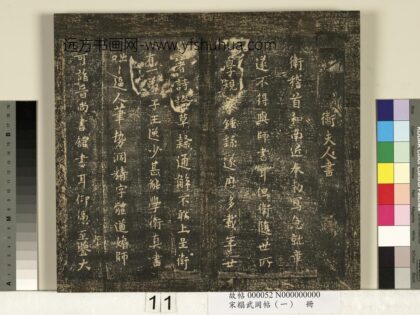 远方书画网-www.yfshuhua.com
衛夫人書
衛稽首和南近奉敕寫急就章
遂不得與師書耳但衛隨世所
學規 鍾繇遂歷多載年廿
著詩論草隸通解不敢上呈衛
有 子王逸少甚能學衛真書
咄咄逼人筆勢洞精字體遒媚師
可詣晉尚書館書耳仰憑至鑒大
11
故帖 000052 N000000000
宋榻武岡帖(一) 冊